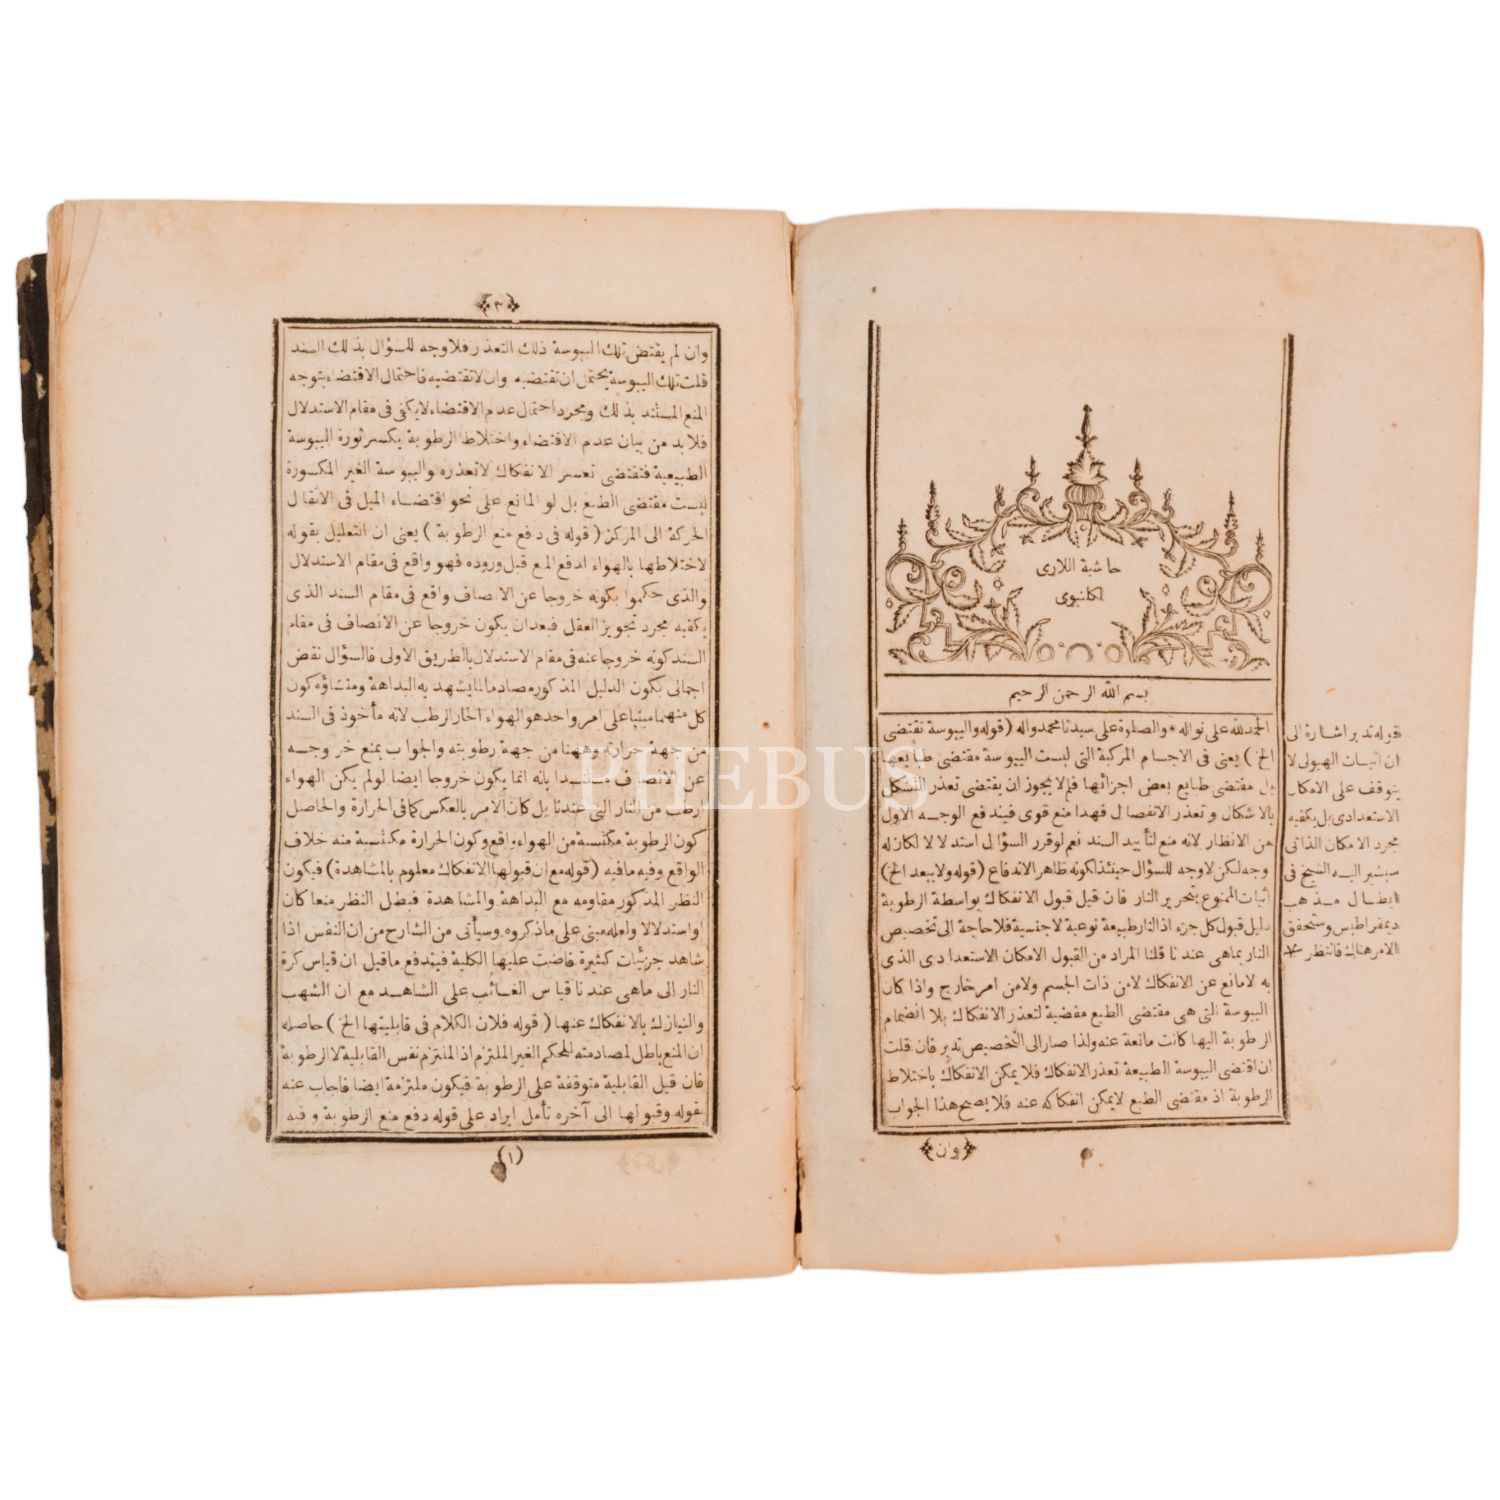 حاشية اللارى
لكلنبوى
بسم الله الرحمن الرحيم
الحمد لله على نواله * والصلوة على سيدنا محمد واله ( قوله واليبوسة تقتضى
الخ ) يعنى فى الاجسام المركبة التى ليست اليبوسة مقتضى طبايعها
بل مقتضى طبايع بعض اجزائها فلم لا يجوز ان يقتضى تعذر التشكل
بالاشكال وتعذر الانفصال فهذا منع قوى فيندفع الوجه الاول
من الانظار لانه منع لتأييد السند نعم لو قرر السؤال استدلالا لكان له
وجه لكن لا وجه للسؤال حينئذ لكونه ظاهر الاندفاع ( قوله ولا يبعد الخ )
اثبات الممنوع بتحرير النار فان قيل قبول الانفكاك بواسطة الرطوبة
دليل قبول كل جزء اذ النار طبيعة نوعية لا جنسية فلا حاجة الى تخصيص
النار بماهى عندنا قلنا المراد من القبول الامكان الاستعدادى الذى
به لا مانع عن الانفكاك لا من ذات الجسم ولا من امر خارج واذا كان
اليبوسة التى هى مقتضى الطبع مقتضية لتعذر الانفكاك بلا انضمام
الرطوبة اليها كانت مانعة عنه ولذا صار الى التخصيص تدبر فان قلت
ان اقتضى اليبوسة الطبيعة تعذر الانفكاك فلا يمكن الانفكاك باختلاط
الرطوبة اذ مقتضى الطبع لا يمكن انفكاكه عنه فلا يصح هذا الجواب
وان
قوله تدبر اشارة الى
ان اثبات الهيولى لا
يتوقف على الامكان
الاستعدادى بل يكفيه
مجرد الامكان الذاتى
سيشير اليه الشيخ فى
ابطال مذهب
ديمقراطيس وستحقق
الامر هناك فانتظر *
٣
وان لم يقتض تلك اليبوسة ذلك التعذر فلا وجه للسؤال بذلك السند
قلت تلك اليبوسة يحتمل ان تقتضيه وان لا تقتضيه فاحتمال الاقتضاء يتوجه
المنع المستند بذلك ومجرد احتمال عدم الاقتضاء لا يكفى فى مقام الاستدلال
فلا بد من بيان عدم الاقتضاء واختلاط الرطوبة يكسر ثورة اليبوسة
الطبيعية فتقتضى تعسر الانفكاك لا تعذره واليبوسة الغير المكسورة
ليست مقتضى الطبع بل لو المانع على نحو اقتضاء الميل فى الاثقال
الحركة الى المركز ( قوله فى دفع منع الرطوبة ) يعنى ان التعليل بقوله
لاختلاطها بالهواء ادفع المنع قبل وروده فهو واقع فى مقام الاستدلال
والذى حكموا بكونه خروجا عن الانصاف واقع فى مقام السند الذى
يكفيه مجرد تجويز العقل فبعد ان يكون خروجا عن الانصاف فى مقام
السند كونه خروجا عنه فى مقام الاستدلال بالطريق الاولى فالسؤال نقض
اجمالى بكون الدليل المذكور مصادما لما يشهد به البداهة ومنشاؤه كون
كل منهما مبنيا على امر واحد هو الهواء الحار الرطب لانه مأخوذ فى السند
من جهة حرارته وههنا من جهة رطوبته والجواب بمنع خروجه
عن الانصاف مستندا بانه انما يكون خروجا ايضا لو لم يكن الهواء
ارطب من النار التى عندنا بل كان الامر بالعكس كما فى الحرارة والحاصل
كون الرطوبة مكتسبة من الهواء واقع وكون الحرارة مكتسبة منه خلاف
الواقع وفيه ما فيه ( قوله مع ان قبولها الانفكاك معلوم بالمشاهدة ) فيكون
النظر المذكور مقاومه مع البداهة والمشاهدة فبطل النظر منعا كان
او استدلالا ولعله مبنى على ما ذكروه وسيأتى من الشارح من ان النفس اذا
شاهد جزئيات كثيرة فاضت عليها الكلية فيندفع ما قيل ان قياس كرة
النار الى ماهى عندنا قياس الغائب على الشاهد مع ان الشهب
والنيازك بالانفكاك عنها ( قوله فلان الكلام فى قابليتها الخ ) حاصله
ان المنع باطل لمصادمته للحكم الغير الملتزم اذ الملتزم نفس القابلية لا الرطوبة
فان قيل القابلية متوقفة على الرطوبة فيكون ملتزمة ايضا فاجاب عنه
بقوله وقبولها الى آخره تأمل ايراد على قوله دفع منع الرطوبة وفيه
(١)
PHEBUS